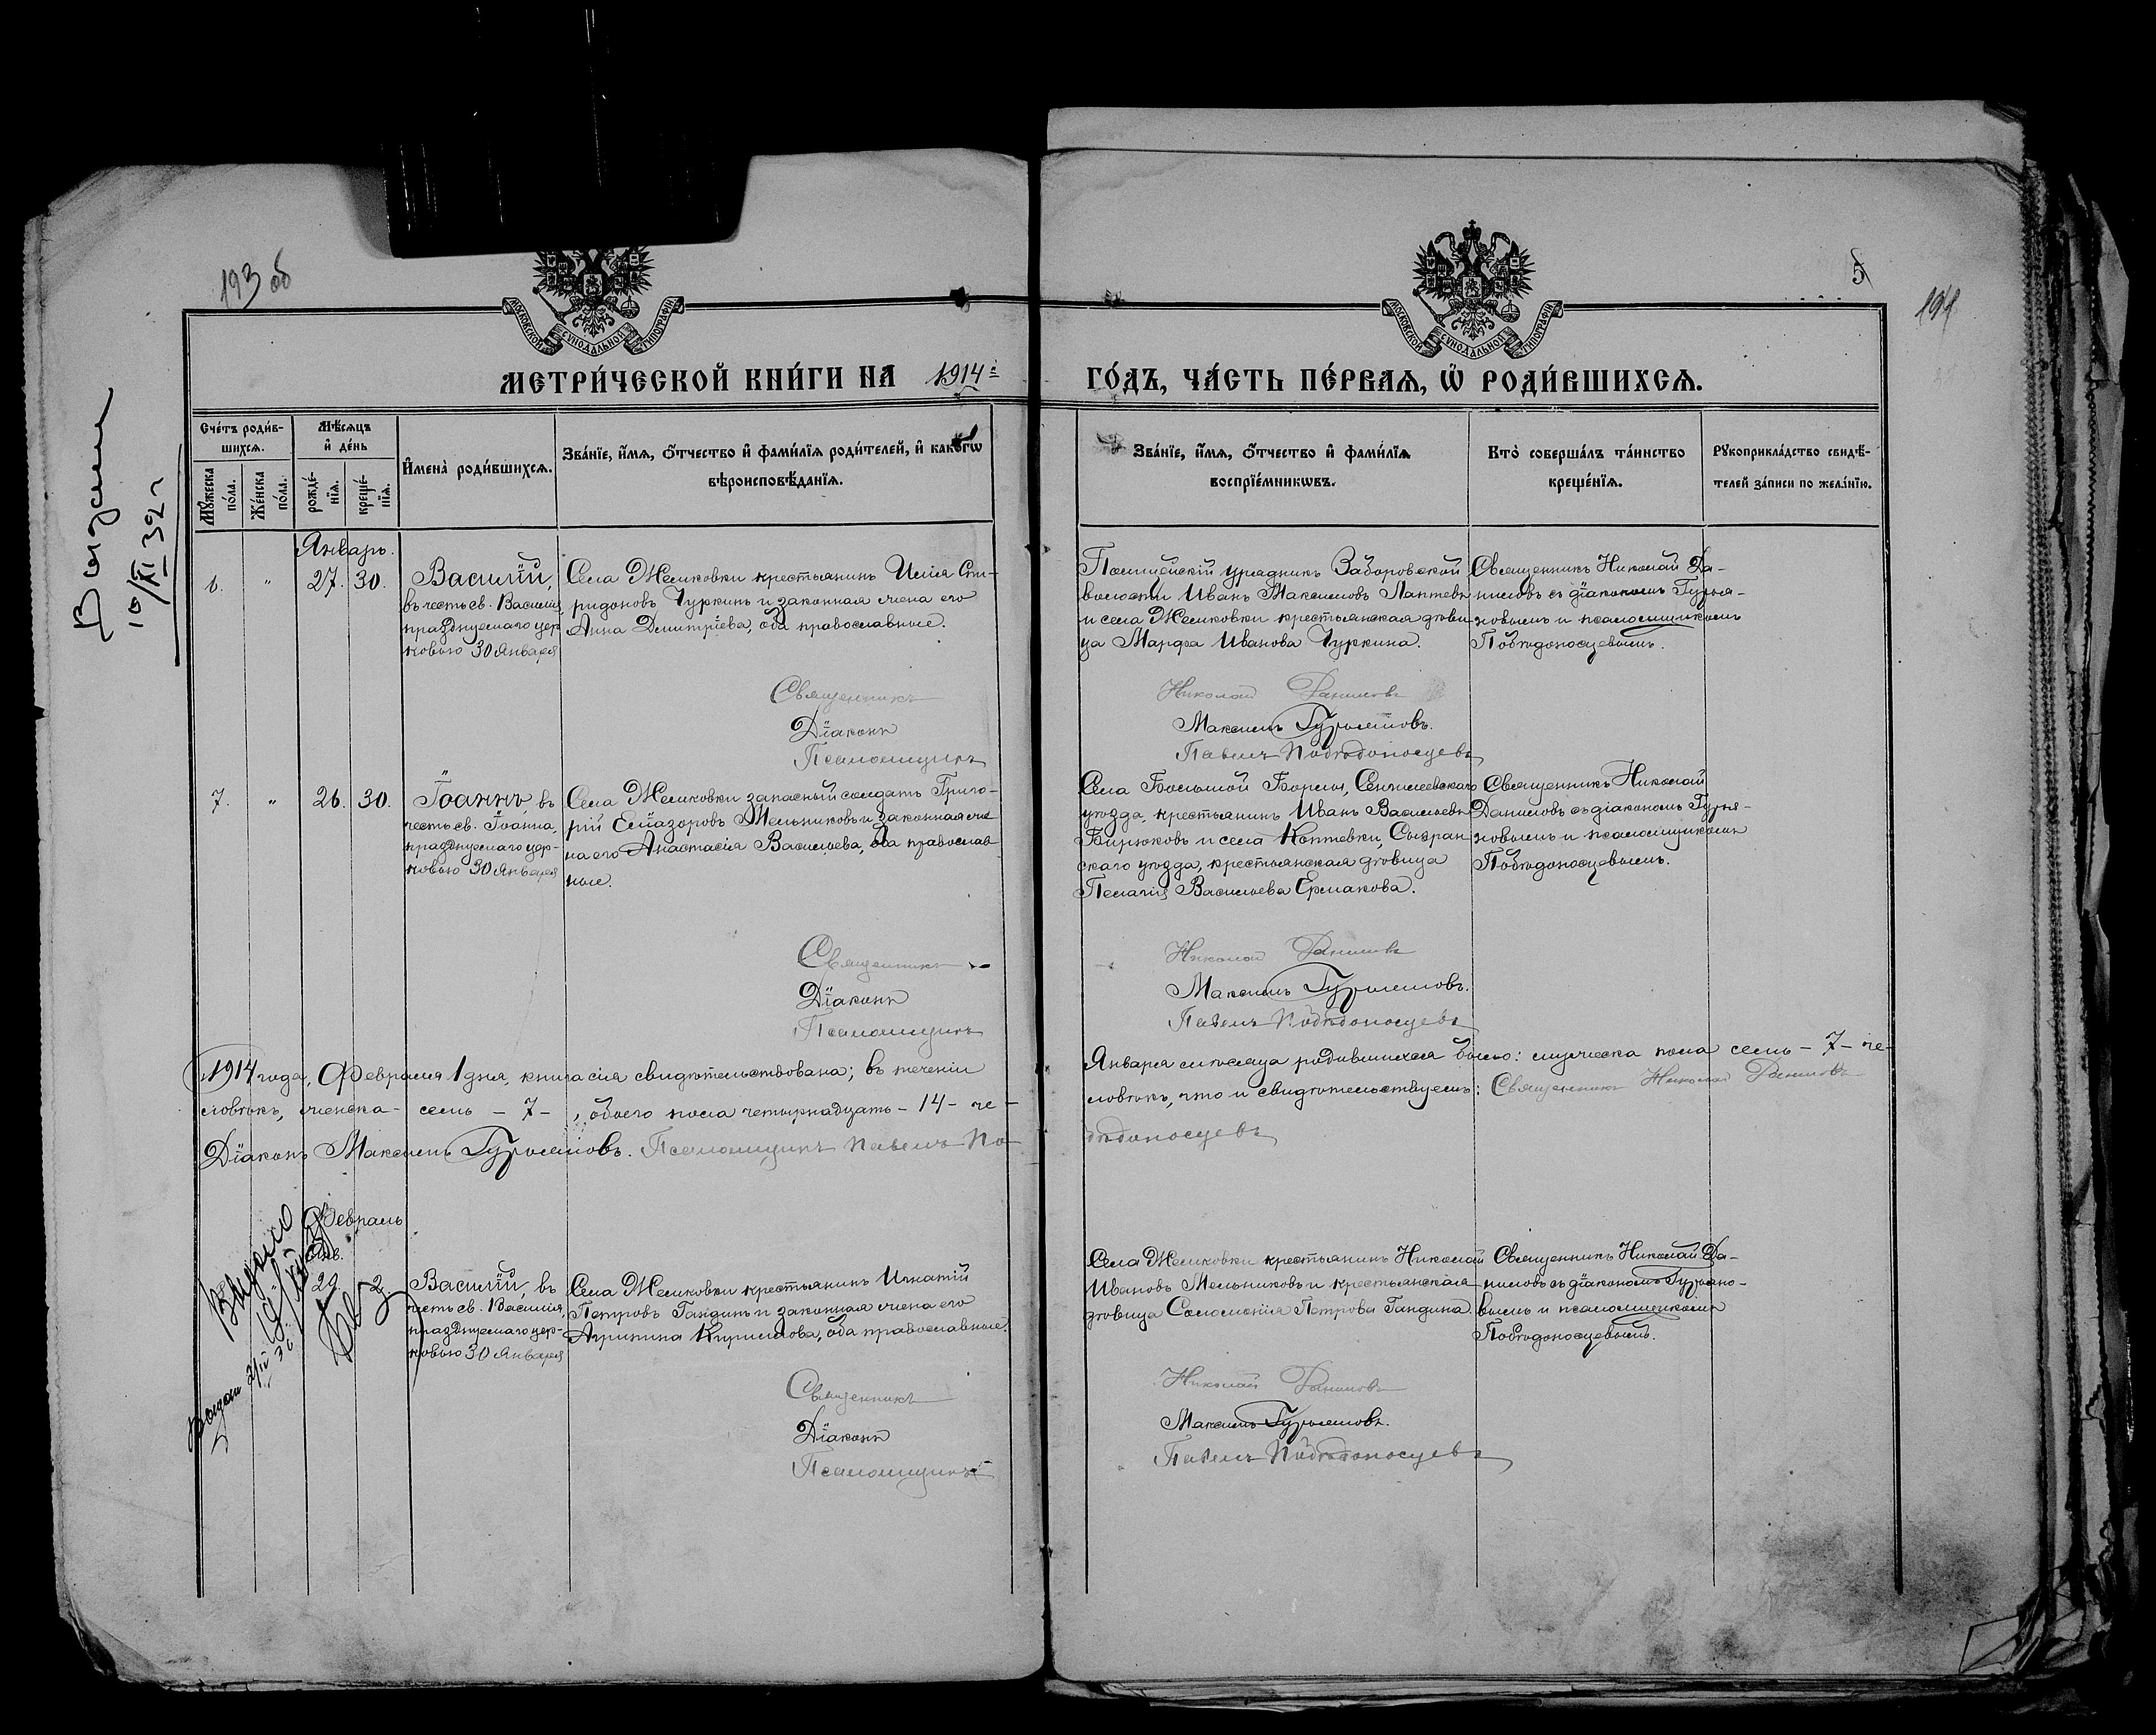 193 об
5
194
МОСКОВСКОЙ СѴНОДАЛЬНОЙ ТИПОГРАФІИ
МОСКОВСКОЙ СѴНОДАЛЬНОЙ ТИПОГРАФІИ
МЕТРИ́ЧЕСКОЙ КНИ́ГИ НА 1914й ГО́ДЪ, ЧА́СТЬ ПЕ́РВАѦ, Ѡ҆ РОДИ́ВШИХСѦ.
Сче́тъ роди́в-
шихсѧ.
Мꙋ́жеска по́ла.
Же́нска по́ла.
Мѣ́сѧцъ
и҆ де́нь
рожде́-
нїѧ.
креще́-
нїѧ.
И҆мена̀ роди́вшихсѧ.
Зва́нїе, и҆́мѧ, ѻ҆́тчество и҆ фами́лїѧ роди́телей, и҆ како́гѡ
вѣроисповѣ́данїѧ.
Зва́нїе, и҆́мѧ, ѻ҆́тчество и҆ фами́лїѧ
воспрїе́мникѡвъ.
Кто̀ соверша́лъ та́инство
креще́нїѧ.
Рꙋкоприкла́дство свидѣ́-
телей за́писи по жела́нїю.
Январь.
6. " 27. 30.
Василій,
въ честь св. Василія,
празднуемаго цер
ковью 30 Января
Села Жемковки крестьянинъ Илія Спи-
ридоновъ Чуркинъ и законная жена его
Анна Димитріева, оба православные.
Полицейскій урядникъ Заборовской
волости Иванъ Максимовъ Лаптевъ
и села Жемковки крестьянская дѣви
ца Марфа Иванова Чуркина.
Священникъ Николай Да-
ниловъ съ діакономъ Гурья-
новымъ и псаломщикомъ
Побѣдоносцевымъ.
Священникъ Николай Даниловъ
Діаконъ Максимъ Гурьяновъ.
Псаломщикъ Павелъ Побѣдоносцевъ
7. " 26. 30.
Іоаннъ, въ
честь св. Іоанна,
празднуемаго цер-
ковью 30 Января
Села Жемковки запасный солдатъ Григо-
рій Еліазоровъ Мельниковъ и законная же
на его Анастасія Васильева, оба православ
ные.
Села Большой Борлы, Сенгилеевскаго
уѣзда, крестьянинъ Иванъ Васильевъ
Бирюковъ и села Коптевки, Сызран
скаго уѣзда, крестьянская дѣвица
Пелагія Васильева Ермакова.
Священникъ Николай
Даниловъ съ діакономъ Гурья-
новымъ и псаломщикомъ
Побѣдоносцевымъ.
Священникъ Николай Даниловъ
Діаконъ Максимъ Гурьяновъ.
Псаломщикъ Павелъ Побѣдоносцевъ
1914 года, Февраля 1 дня, книга сія свидѣтельствована; въ теченіи Января мѣсяца родившихся было: мужеска пола семь - 7 - че-
ловѣкъ, женска - семь - 7 - , обоего пола четырнадцать - 14 - че-ловѣкъ, что и свидѣтельствуемъ: Священникъ Николай Даниловъ
Діаконъ Максимъ Гурьяновъ. Псаломщикъ Павелъ По-бѣдоносцевъ
Февраль
Янв.
29. 2.
Василій, въ
честь св. Василія,
празднуемаго цер-
ковью 30 Января
Села Жемковки крестьянинъ Игнатій
Петровъ Гандинъ и законная жена его
Агрипина Кирилова, оба православные.
Села Жемковки крестьянинъ Николай
Ивановъ Мельниковъ и крестьянская
дѣвица Соломонія Петрова Гандина.
Священникъ Николай Да-
ниловъ съ діакономъ Гурьяно-
вымъ и псаломщикомъ
Побѣдоносцевымъ.
Священникъ Николай Даниловъ
Діаконъ Максимъ Гурьяновъ.
Псаломщикъ Павелъ Побѣдоносцевъ